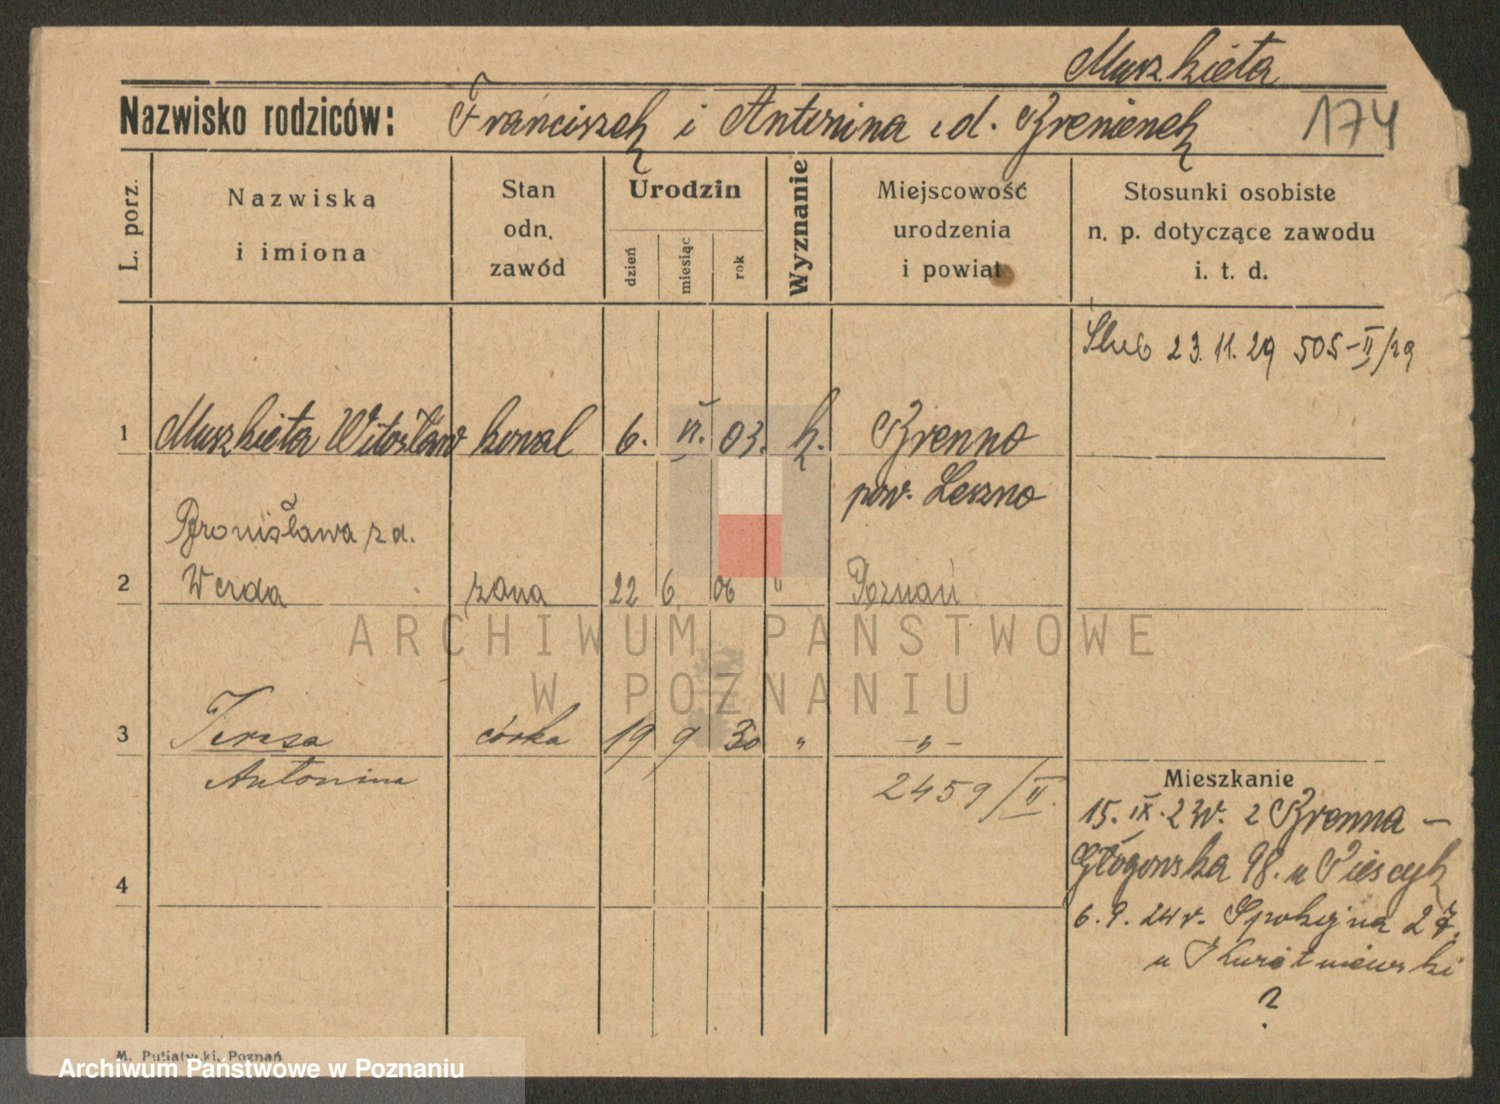 Muszkieta
Nazwisko rodziców: Franciszek i Antonina z d. Brenienek
174
L. porz.
Nazwiska
i imiona
Stan
odn.
zawód
Urodzin
dzień
miesiąc
rok
Wyznanie
Miejscowość
urodzenia
i powiat
Stosunki osobiste
n. p. dotyczące zawodu
i. t. d.
Ślub 23.11.29 505-II/29
1 Muszkieta Witosław kowal 6. VI. 03. k. Brenno
pow. Leszno
Bronisława z d.
2 Werda żona 22 6 06 " Poznań
ARCHIWUM PAŃSTWOWE
W POZNANIU
3 Teresa córka 19 9 30 " -"-
Antonina 2459/II.
Mieszkanie
15. IX. 23r. z Brenna -
Głogowska 98. u Pieścyk
4
6.9.24r. Spokojna 27.
u
?
M. Putiatycki, Poznań
Archiwum Państwowe w Poznaniu